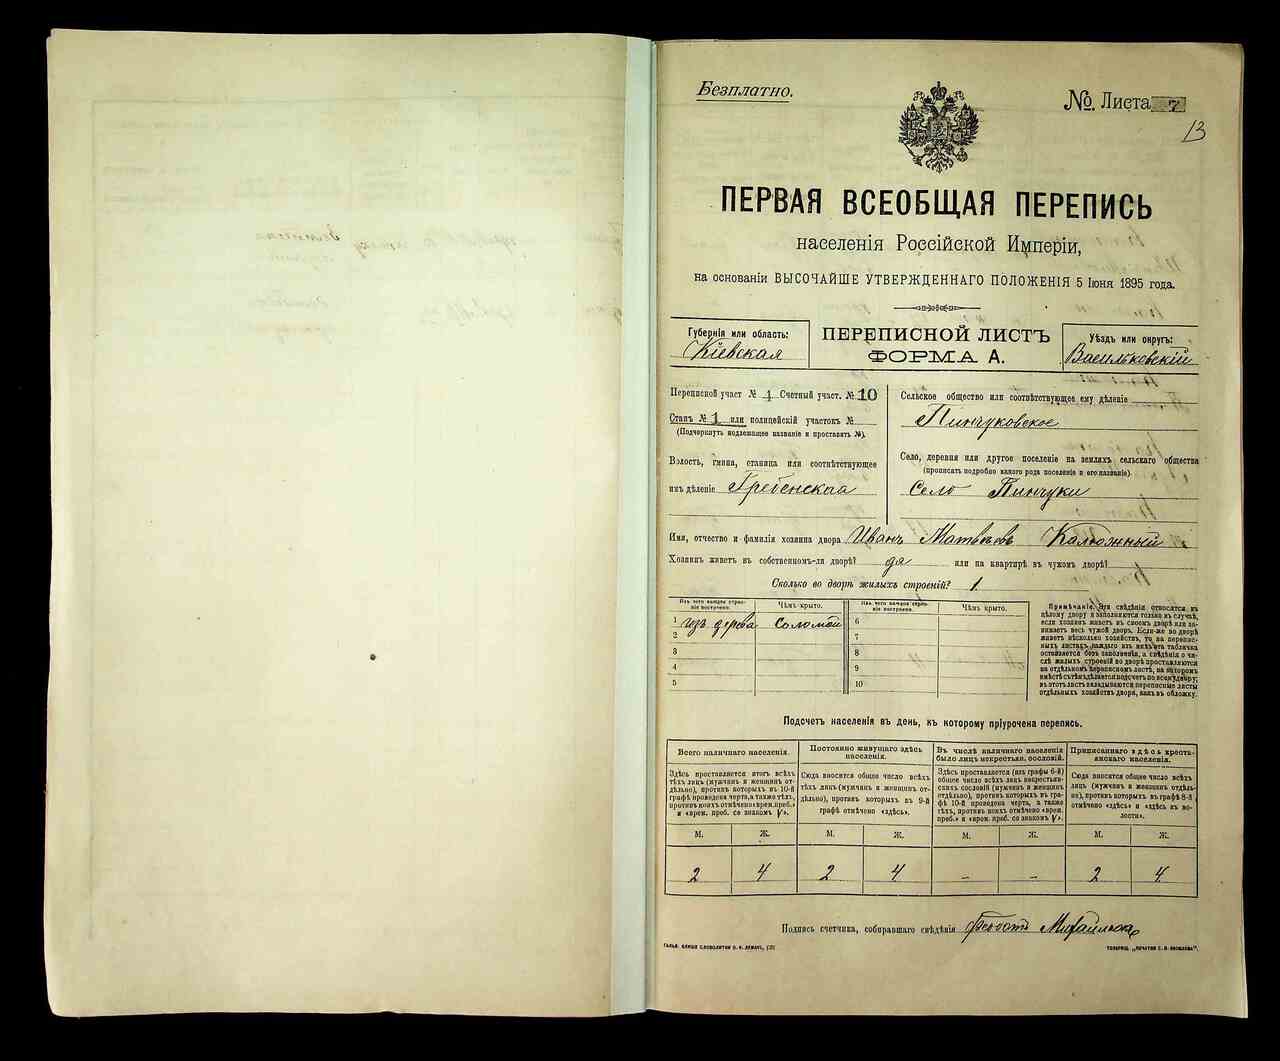 Безплатно.
№ Листа 7
13
ПЕРВАЯ ВСЕОБЩАЯ ПЕРЕПИСЬ
населенія Россійской Имперіи,
на основаніи ВЫСОЧАЙШЕ УТВЕРЖДЕННАГО ПОЛОЖЕНІЯ 5 Іюня 1895 года.
Губернія или область:
Кіевская
ПЕРЕПИСНОЙ ЛИСТЪ
ФОРМА А.
Уѣздъ или округъ:
Васильковскій
Переписной участ № 1 Счетный участ. № 10
Станъ № 1 или полицейскій участокъ №
(Подчеркнуть подлежащее названіе и проставить №).
Волость, гмина, станица или соотвѣтствующее
имъ дѣленіе Гребенская
Сельское общество или соотвѣтствующее ему дѣленіе
Пинчуковское
Село, деревня или другое поселеніе на земляхъ сельскаго общества
(прописать подробно какого рода поселеніе и его названіе).
Село Пинчуки
Имя, отчество и фамилія хозяина двора Иванъ Матвѣевъ Калюжный
Хозяинъ живетъ въ собственномъ-ли дворѣ? да или на квартирѣ въ чужомъ дворѣ?
Сколько во дворѣ жилыхъ строеній? 1.
Изъ чего каждое строе-
ніе построено.
Чѣмъ крыто.
Изъ чего каждое строе-
ніе построено.
Чѣмъ крыто.
1 изъ дерева соломой 6
2 7
3 8
4 9
5 10
Примѣчаніе. Эти свѣдѣнія относятся къ
цѣлому двору и заполняются только въ случаѣ,
если хозяинъ живетъ въ своемъ дворѣ или за-
нимаетъ весь чужой дворъ. Если-же во дворѣ
живетъ нѣсколько хозяйствъ, то на перепис-
ныхъ листахъ каждаго изъ нихъ эта табличка
оставляется безъ заполненія, а свѣдѣнія о чи-
слѣ жилыхъ строеній во дворѣ проставляются
на отдѣльномъ переписномъ листѣ, на которомъ
вмѣстѣ съ тѣмъ дѣлается подсчетъ по всему двору;
въ этотъ листъ вкладываются переписные листы
отдѣльныхъ хозяйствъ двора, какъ въ обложку.
Подсчетъ населенія въ день, къ которому пріурочена перепись.
Всего наличнаго населенія.
Здѣсь проставляется итогъ всѣхъ
тѣхъ лицъ (мужчинъ и женщинъ от-
дѣльно), противъ которыхъ въ 10-й
графѣ проведена черта, а также тѣхъ,
противъ коихъ отмѣчено «врем. преб.»
и «врем. преб. со знакомъ V».
Постоянно живущаго здѣсь
населенія.
Сюда вносится общее число всѣхъ
тѣхъ лицъ (мужчинъ и женщинъ от-
дѣльно), противъ которыхъ въ 9-й
графѣ отмѣчено «здѣсь».
Въ числѣ наличнаго населенія
было лицъ некрестьян. сословій.
Здѣсь проставляется (изъ графы 6-й)
общее число всѣхъ лицъ некрестьян-
скихъ сословій (мужчинъ и женщинъ
отдѣльно), противъ которыхъ въ гра-
фѣ 10-й проведена черта, а также
тѣхъ, противъ коихъ отмѣчено «врем.
преб.» и «врем. преб. со знакомъ V».
Приписаннаго здѣсь кресть-
янскаго населенія.
Сюда вносится общее число всѣхъ
лицъ (мужчинъ и женщинъ отдѣль-
но), противъ которыхъ въ графѣ 8-й
отмѣчено «здѣсь» и «здѣсь въ во-
лости».
М. Ж. М. Ж. М. Ж. М. Ж.
2 4 2 4 – – 2 4
Подпись счетчика, собиравшаго свѣдѣнія